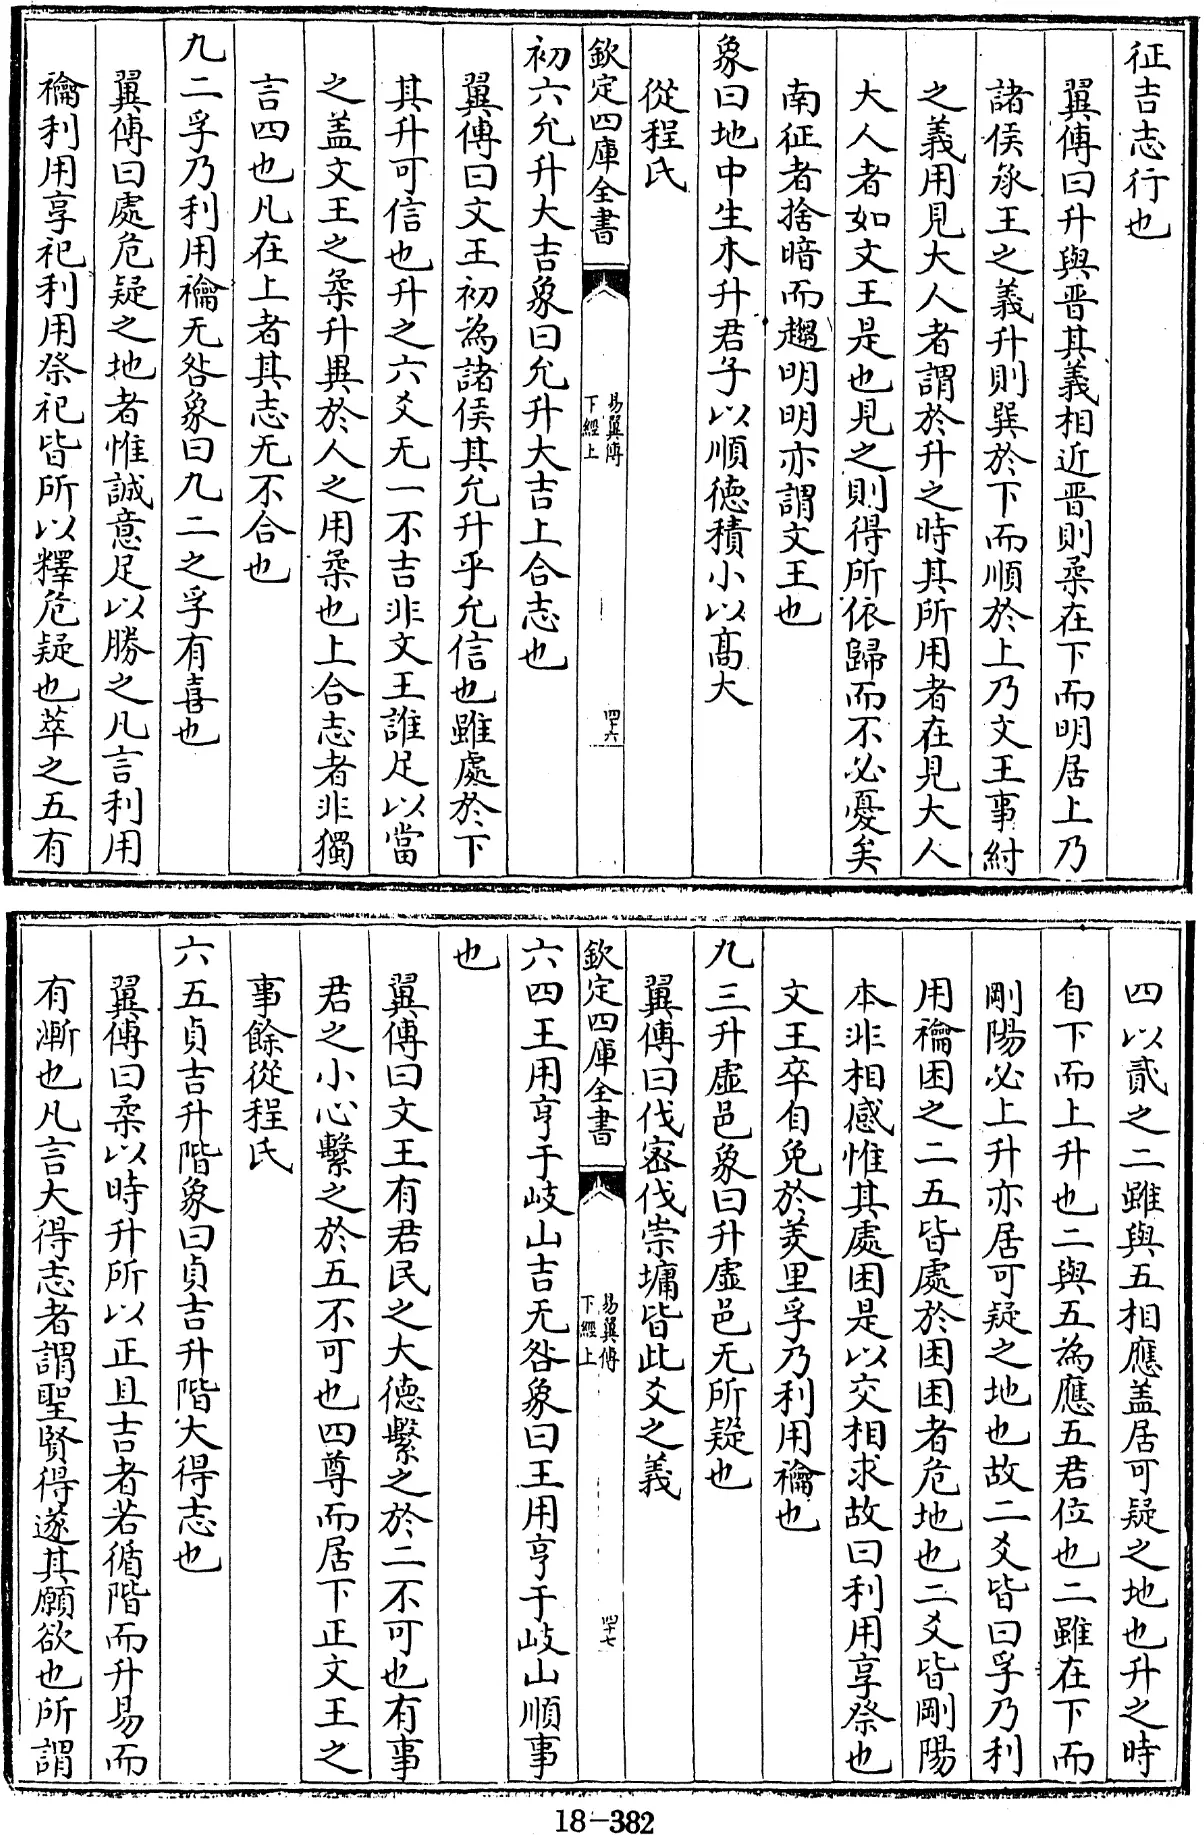 征吉志行也
翼傳曰升與晋其義相近晋則柔在下而明居上乃
諸侯承王之義升則巽於下而順於上乃文王事紂
之義用見大人者謂於升之時其所用者在見大人
大人者如文王是也見之則得所依歸而不必憂矣
南征者捨暗而趨明明亦謂文王也
象曰地中生木升君子以順德積小以髙大
從程氏
欽定四庫全書
易翼傳
下經上
四十六
初六允升大吉象曰允升大吉上合志也
翼傳曰文王初為諸侯其允升乎允信也雖處於下
其升可信也升之六爻无一不吉非文王誰足以當
之盖文王之柔升異於人之用柔也上合志者非獨
言四也凡在上者其志无不合也
九二孚乃利用禴无咎象曰九二之孚有喜也
翼傳曰處危疑之地者惟誠意足以勝之凡言利用
禴利用享祀利用祭祀皆所以釋危疑也萃之五有
四以貳之二雖與五相應盖居可疑之地也升之時
自下而上升也二與五為應五君位也二雖在下而
剛陽必上升亦居可疑之地也故二爻皆曰孚乃利
用禴困之二五皆處於困困者危地也二爻皆剛陽
本非相感惟其處困是以交相求故曰利用享祭也
文王卒自免於羑里孚乃利用禴也
九三升虛邑象曰升虛邑无所疑也
翼傳曰伐宻伐崇墉皆此爻之義
欽定四庫全書
易翼傳
下經上
四十七
六四王用亨于岐山吉无咎象曰王用亨于岐山順事
也
翼傳曰文王有君民之大德繫之於二不可也有事
君之小心繫之於五不可也四尊而居下正文王之
事餘從程氏
六五貞吉升階象曰貞吉升階大得志也
翼傳曰柔以時升所以正且吉者若循階而升易而
有漸也凡言大得志者謂聖賢得遂其願欲也所謂
18-382